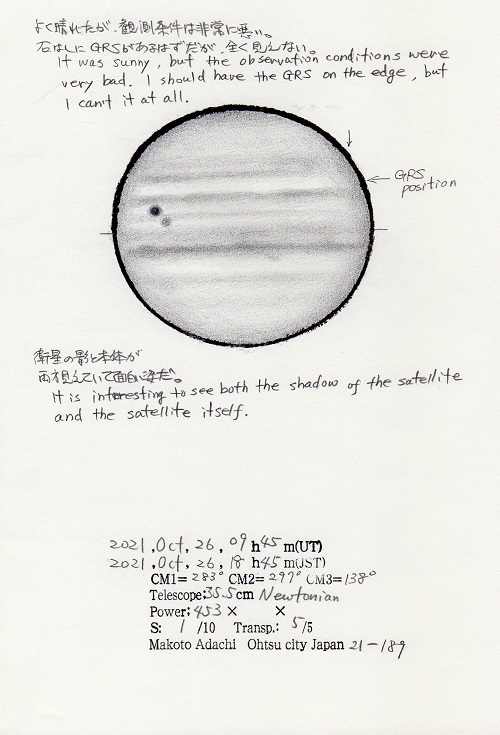 よく晴れたが、観測条件は非常に悪い。
右はしにGRSがあるはずだが、全く見えない。
It was sunny, but the observation conditions were
very bad. I should have the GRS on the edge, but
I can't it at all.
GRS
position
衛星の影と本体が
両方見えていて面白い
It is interesting to see both the shadow of the satellite
and the satellite itself.
2021, Oct, 26, 09 h 45 m(UT)
2021, Oct, 26, 18 h 45 m(JST)
CM1= 283° CM2= 297° CM3= 138°
Telescope: 35.5 cm Newtonian
Power: 453 × ×
S: 1 /10 Transp.: 5 /5
Makoto Adachi Ohtsu city Japan 21-189